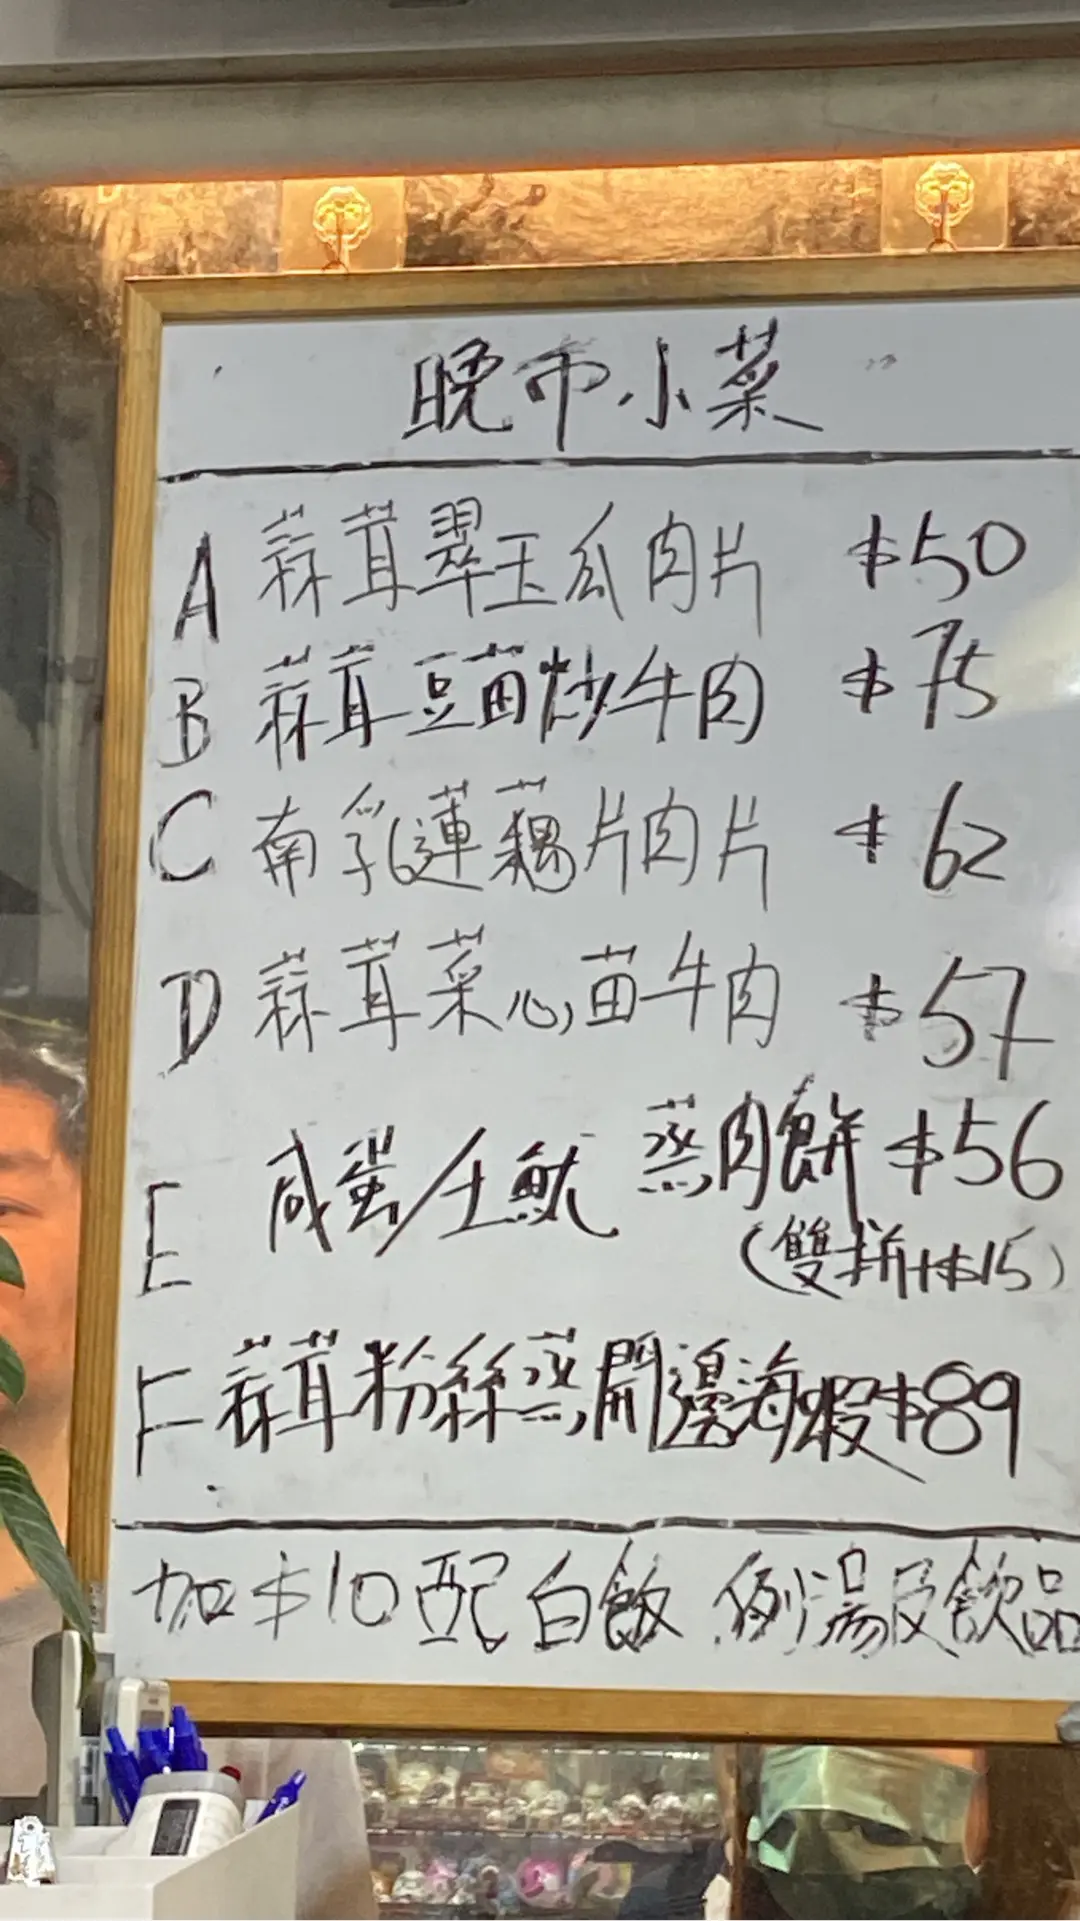 晚市小菜
A 蒜茸翠玉瓜肉片 $50
B 蒜茸豆苗炒牛肉 $75
C 南乳蓮藕片肉片 $62
D 蒜茸菜心苗牛肉 $57
E 咸蛋/土魷 蒸肉餅 $56
(雙拼+$15)
F 蒜茸粉絲蒸開邊海蝦 $89
加$10配白飯 例湯及飲品